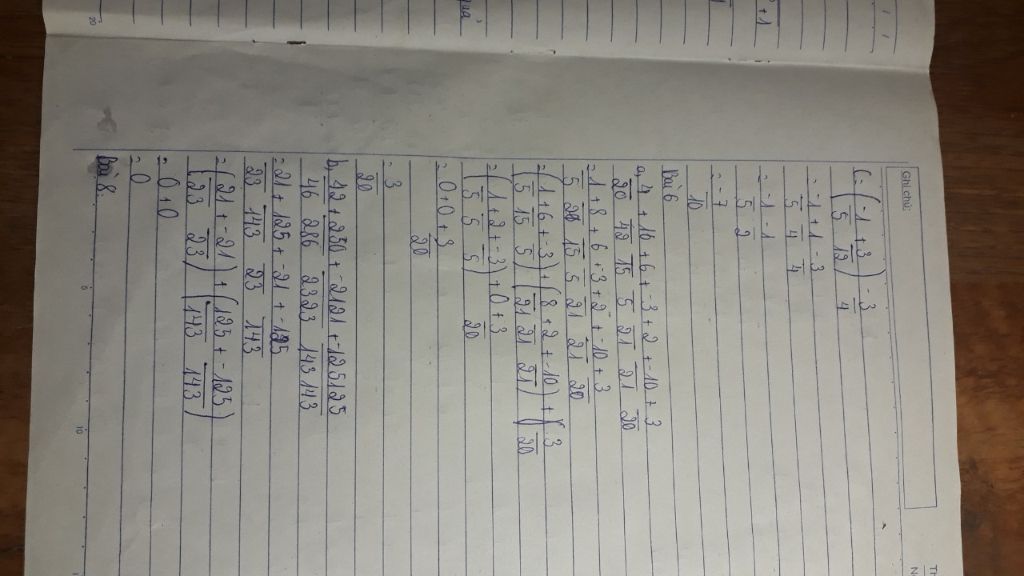 Ghi chú:
C = (-1/5 + 3/12) + -3/4
= -1/5 + 1/4 + -3/4
= -1/5 + -1/2
= -7/10
Bài 6
a, 4/20 + 16/42 + 6/15 + -3/5 + 2/21 + -10/21 + 3/20
= 1/5 + 8/21 + 6/15 + -3/5 + 2/21 + -10/21 + 3/20
= (1/5 + 6/15 + -3/5) + (8/21 + 2/21 + -10/21) + 3/20
= (1/5 + 2/5 + -3/5) + 0 + 3/20
= 0 + 0 + 3/20
= 3/20
b, 42/46 + 250/286 + -2121/2323 + -125125/143143
= 21/23 + 125/143 + -21/23 + -125/143
= (21/23 + -21/23) + (125/143 + -125/143)
= 0 + 0
= 0
Bài 8